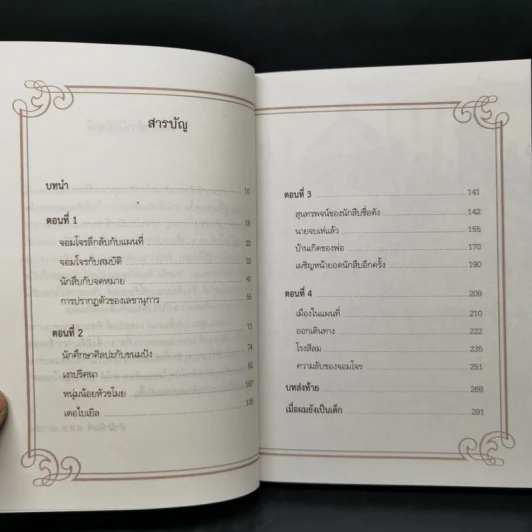 สารบัญ
บทนำ 10
ตอนที่ 1 19
จอมโจรลึกลับกับแผนที่ 20
จอมโจรกับสมบัติ 22
นักสืบกับจดหมาย 41
การปรากฏตัวของเลขานุการ 55
ตอนที่ 2 73
นักศึกษาศิลปะกับขนมปัง 74
เงาปริศนา 82
หนุ่มน้อยหัวขโมย 107
เดอไบเยิล
ตอนที่ 3 141
สุนทรพจน์ของนักสืบชื่อดัง 142
นายจบเห่แล้ว 155
บ้านเกิดของพ่อ 170
เผชิญหน้ายอดนักสืบอีกครั้ง 190
ตอนที่ 4 209
เมืองในแผนที่ 210
ออกเดินทาง 222
โรงสีลม 235
ความลับของจอมโจร 251
บทส่งท้าย 269
เมื่อผมยังเป็นเด็ก 291